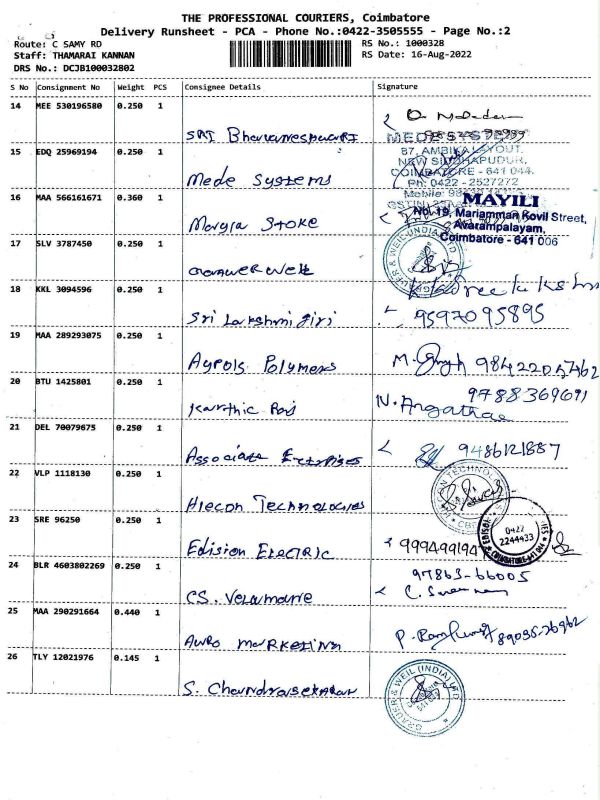 THE PROFESSIONAL COURIERS, Coimbatore
Delivery Runsheet - PCA - Phone No.:0422-3505555 - Page No.:2
Route: C SAMY RD
RS No.: 1000328
Staff: THAMARAI KANNAN
RS Date: 16-Aug-2022
DRS No.: DCJB100032802
S No Consignment No Weight PCS Consignee Details Signature
14 MEE 530196580 0.250 1
SRI Bhuvaneshwari
MEDE SYSTEMS
15 EDQ 25969194 0.250 1
87, AMBIKA LAYOUT,
NEW SIDDHAPUDUR,
COIMBATORE - 641 044.
Mede Systems
Ph: 0422 - 2527272
16 MAA 566161671 0.360 1
MAYILI
No. 19, Mariamman Kovil Street,
Avarampalayam,
Coimbatore - 641 006
Morgia STOKE
17 SLV 3787450 0.250 1
GRAUER & WEIL (INDIA) LTD
18 KKL 3094596 0.250 1
Sri Lakshmi Giri 9597095895
19 MAA 289293075 0.250 1
Aypols Polymers
20 BTU 1425801 0.250 1
9788369691
Karthic Raj
21 DEL 70079675 0.250 1
Associate Entrprises 9486121887
22 VLP 1118130 0.250 1
Hiecon Technologies
23 SRE 96250 0.250 1
0422
2244433
Edision Electric
24 BLR 4603802269 0.250 1
97863-66005
CS. Velumanie
25 MAA 290291664 0.440 1
Auro Marketing
26 TLY 12021976 0.145 1
S. Chandrasekaran
GRAUER & WEIL (INDIA) LTD